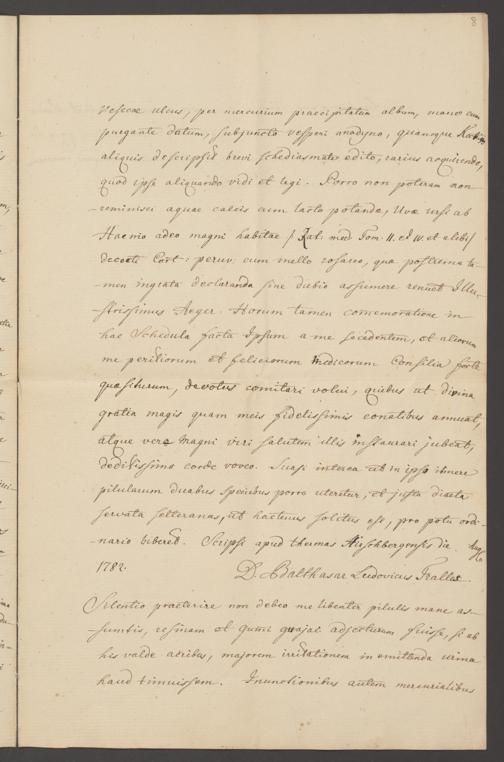 8
vesicae ulcus, per mercurium praecipitatum album, manes cum
purgante datum, subjuncto vesperi anodyno, quamque
aliquis descripsit brevi schediasmate edito, rarius acquirendo,
quod ipse aliquando vidi et legi. Porro non poteram non
reminisci aquae calcis cum lacte potandae, Uvae ursi ab
Haenio adeo magni habitae / Rat: med Tom. II. et IV. et alibi /
decocti Cort: peruv: cum melle rosaceo, quae postrema ta-
men ingrata declaranda sine dubio assumere renuet Illu-
strissimus Aeger. Horum tamen comemoratione in
hac Schedula facta Ipsum a me secedentem, et aliorum
me peritiorum et feliciorum Medicorum Consilia forte
quaesiturum, devotus comitari volui, quibus ut divina
gratia magis quam meis fidelissimis conatibus annuat,
atque vere magni viri salutem illis instaurari jubeat,
deditissimo corde voveo. Suasi interea ut in ipso itinere
pilularum duabus speciebus porro uteretur, et justa diaeta
servata selteranas, ut hactenus solitus est, pro potu ordi-
nario biberet. Scripsi apud thermas Hirschbergenses die
1782.
D. Balthasar Ludovicus Tralles.
Silentio praeterire non debeo me libenter pilulis mane as-
sumtis, resinam et gumi guajac adjecturum fuisse, si ab
his valde acribus, majorem irritationem in emittenda urina
haud timuissem. Inunctionibus autem mercurialibus